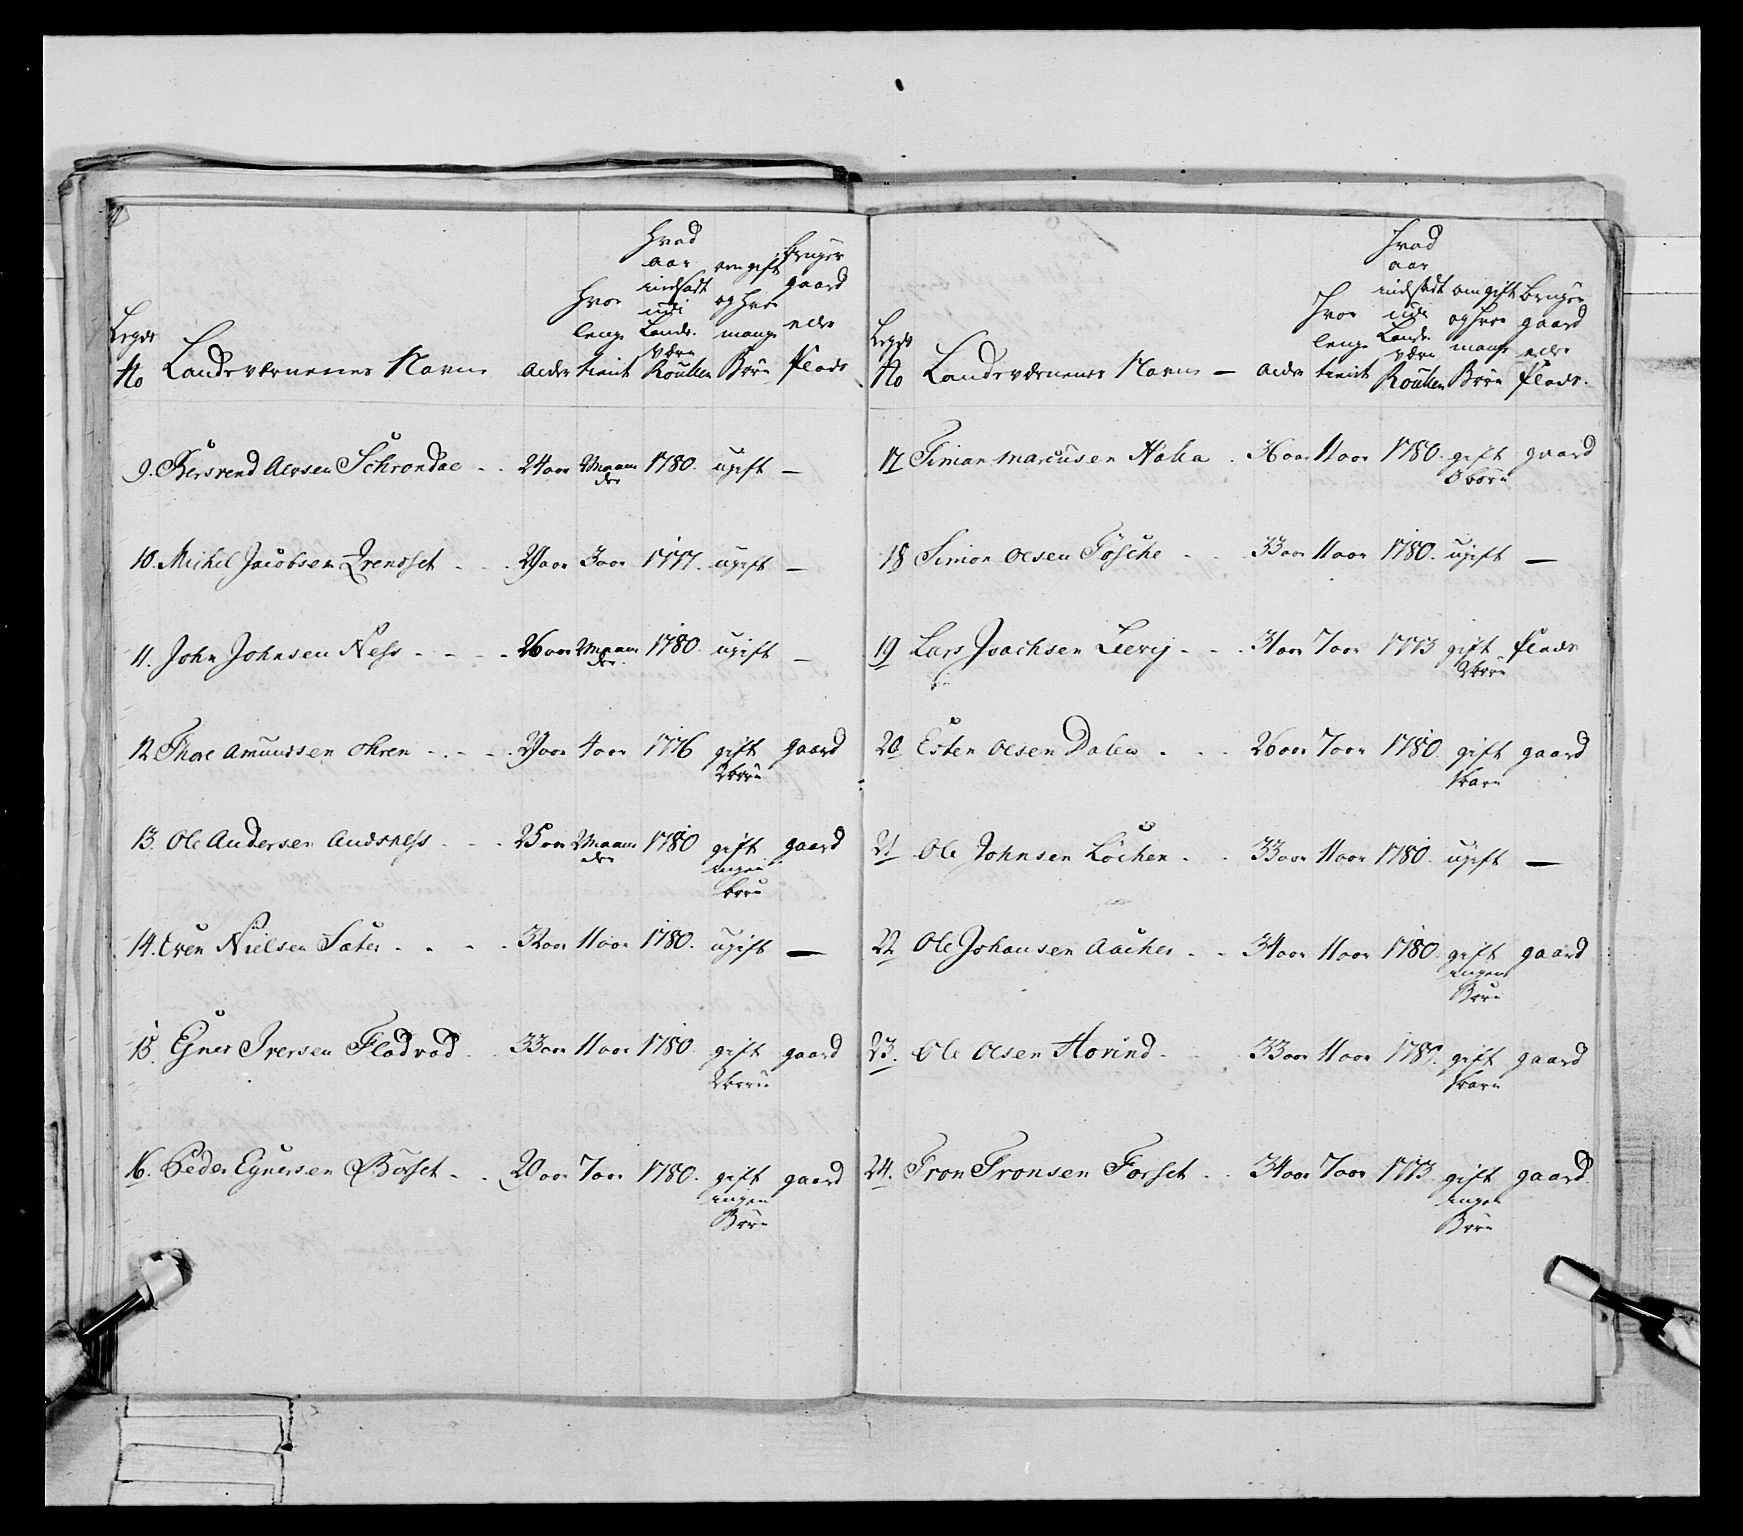 Legds No Landeværnenes Navne alder Hvor lenge tient Hvad aar indsadt udi Lands Værn Roullen om gift og Hvor mange Børn bruger gaard eller Plads
9. Bersvend Aersen Schrondae - . 24 aar 2 Maaneder 1780. ugift —
10. Mikel Jacobsen Drendset - . . 29 aar 3 aar 1777. ugift —
11. John Johnsen Ness - . - . 26 aar 2 Maaneder 1780. ugift —
12. Thore Amundsen Ohren . - . - . 29 aar 4 aar 1776 gift gaard
2 børn
13. Ole Andersen Audsness . - . 25 aar 2 Maaneder 1780 gift gaard
ingen
børn
14. Even Nielsen Sæter . . - . 32 aar 11 aar 1780. ugift —
15. Egner Iversen Fladvad . . 33 aar 11 aar 1780. gift gaard
2 børn
16. Peder Egnersen Børset - . . 29 aar 7 aar 1780. gift gaard
ingen
Børn
Legds No Landeværnenes Navne — alder Hvor lenge tient Hvad aar indsadt udi Lande Værn Roullen om gift og Hvor mange Børn Bruger gaard eller Plads.
17 Simon Marcusen Halla . 36 aar 11 aar 1780. gift gaard
3 børn
18 Simon Olsen Tösche - . . 33 aar 11 aar 1780. ugift —
19 Lars Joachsen Leerij - . - . 31 aar 7 aar 1773 gift Plads
2 børn
20 Esten Olsen Dalen . . . 26 aar 7 aar 1780. gift gaard
1 barn
21 Ole Johnsen Löchen . . 33 aar 11 aar 1780. ugift —
22 Ole Johansen Aacker . - . 34 aar 11 aar 1780. gift gaard
ingen
Børn
23. Ole Olsen Hovind . - 33 aar 11 aar gift gaard
1 barn
24. Tron Tronsen Forset . . 34 aar 7 aar 1773. gift gaard.
ingen
Børn